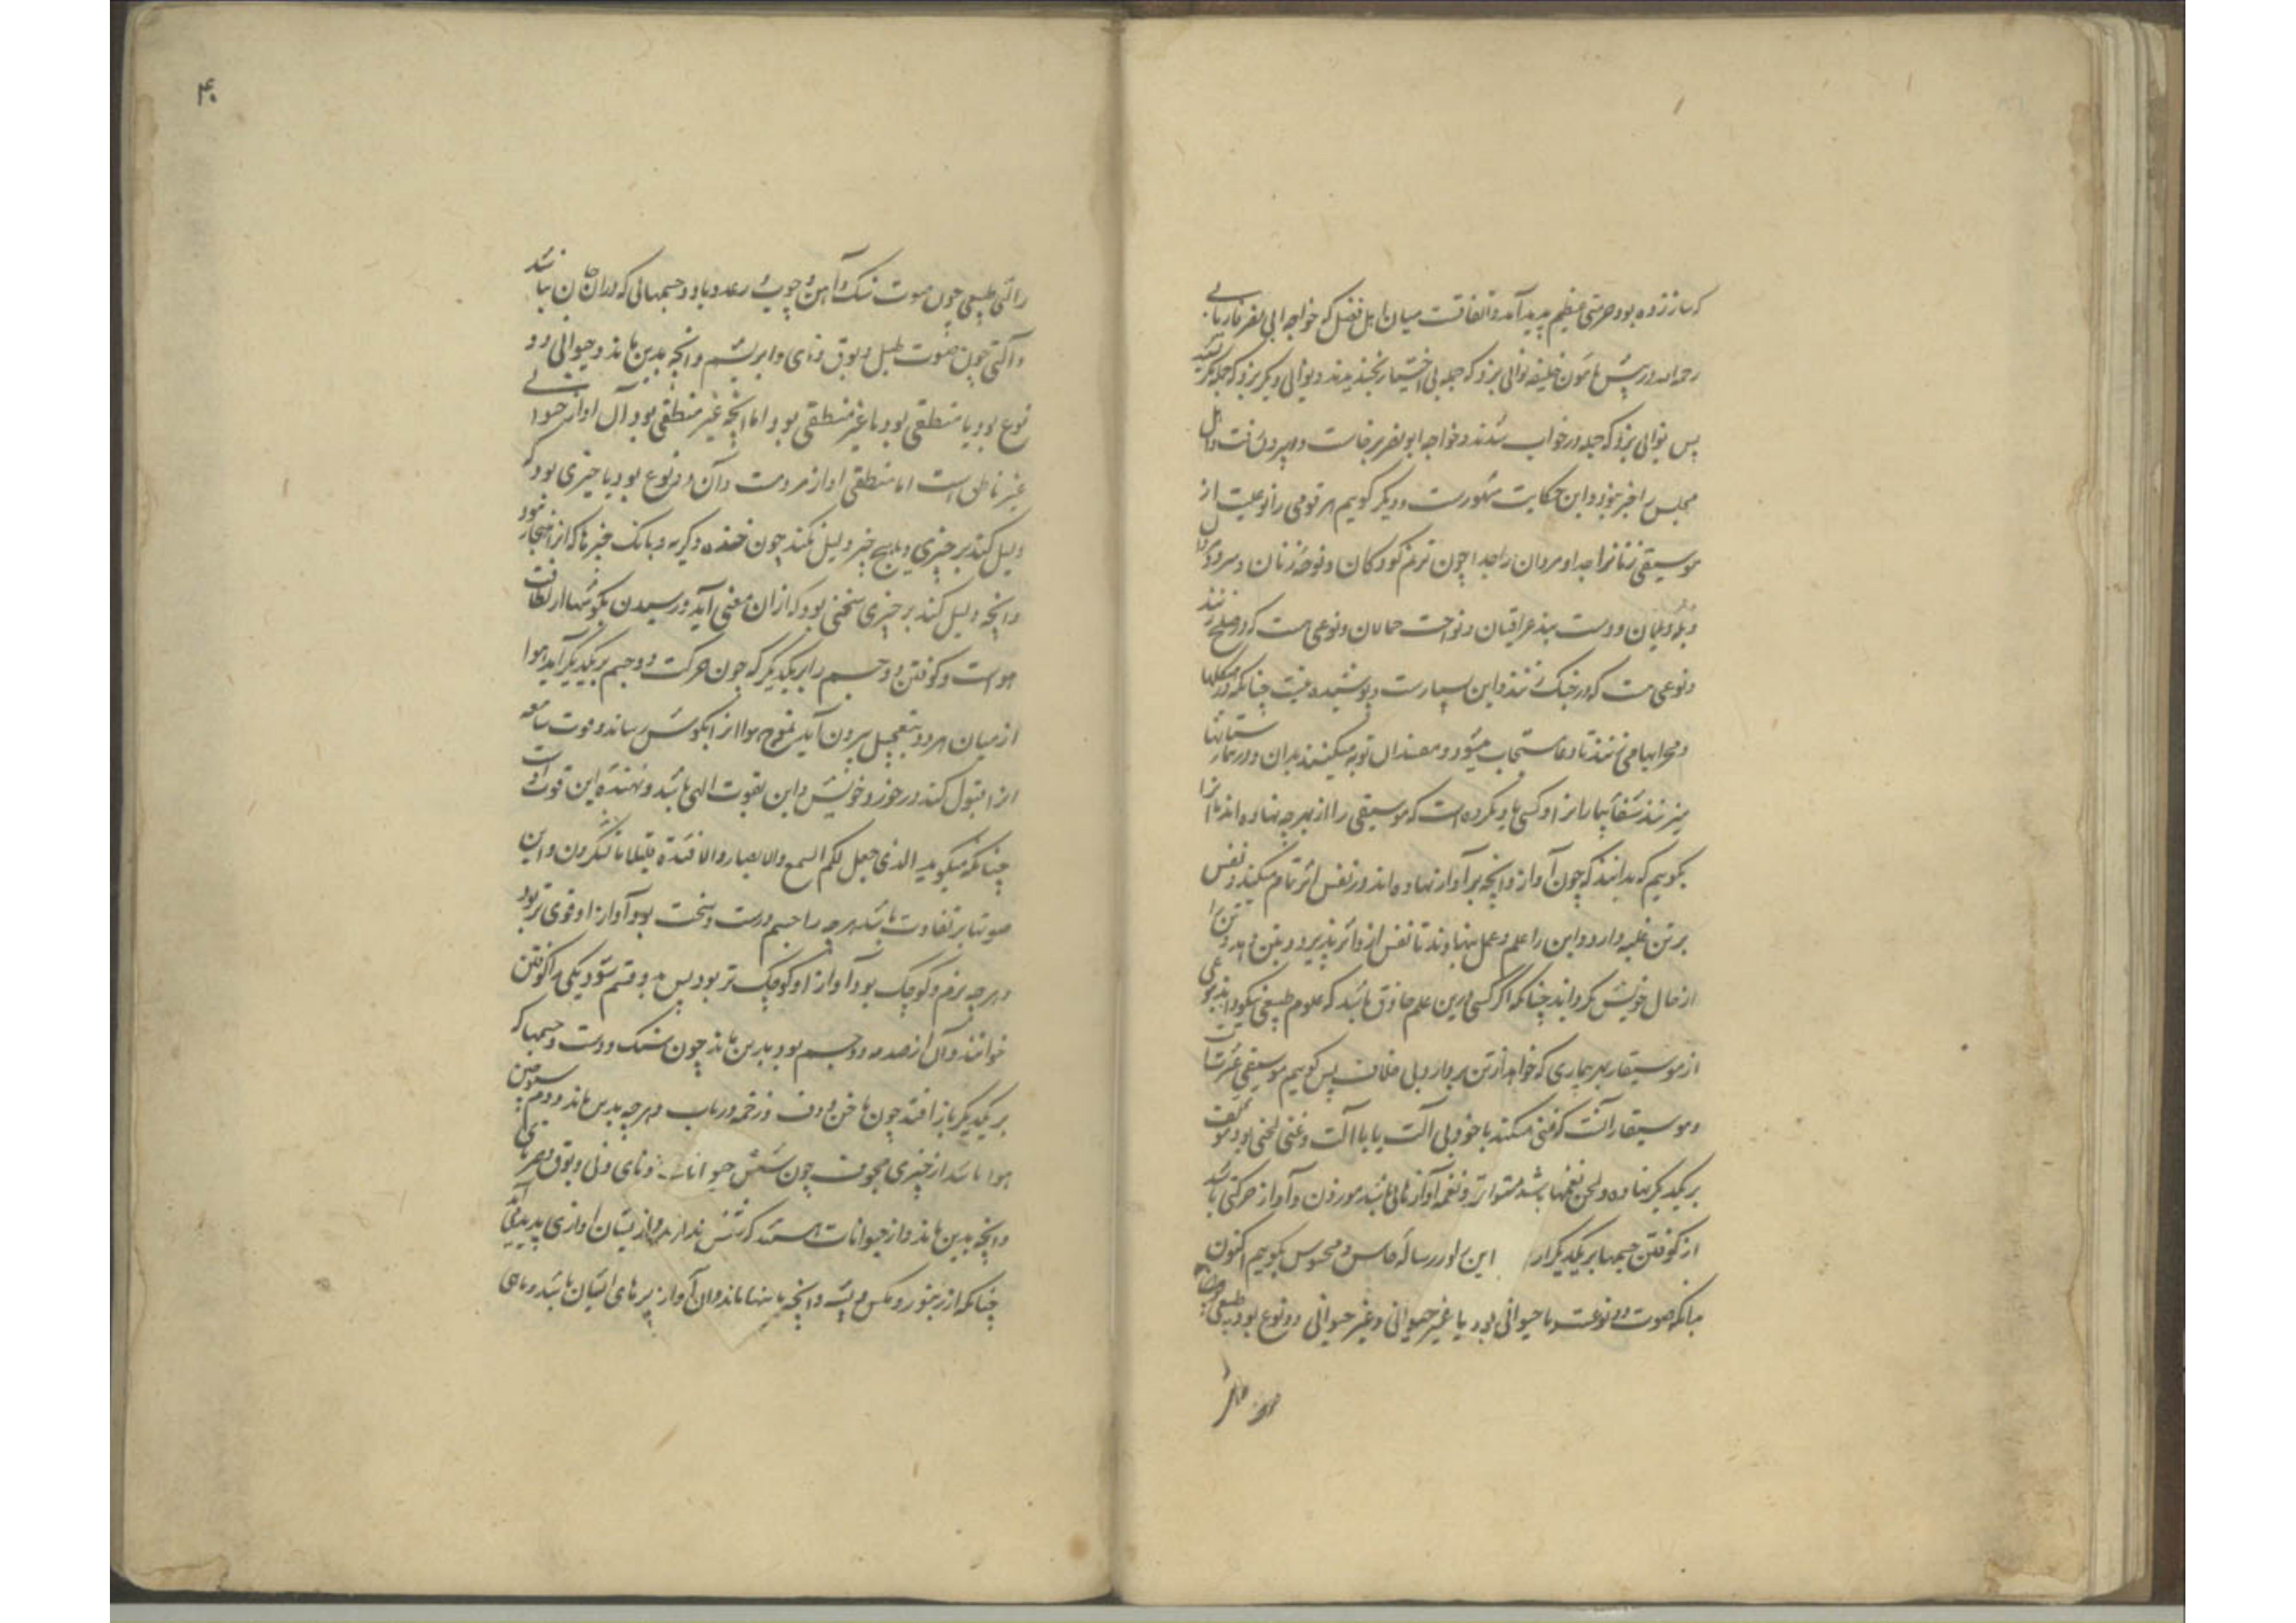 که ساز زده بود حرمتی عظیم پدید آمد و اتفاقست میان اهل فضل که خواجه ابی نصر فاریابی
رحمه الله در پیش مامون خلیفه نوائی بزد که جمله بی اختیار بخندیدند و نوائی دیگر بزد که جمله بگریستند
پس نوائی بزد که جمله در خواب شدند و خواجه ابو نصر برخاست و بیرون رفت و اهل
مجلس را خبر نبود و این حکایت مشهورست و دیگر گویم هر قومی را نوعیست از
موسیقی زنانرا جدا و مردان را جدا چون ترنم کودکان و نوحه زنان و سرود
و دست بند عراقیان و نواخت و نوعی هست که در صلح زنند
و نوعی هست که در جنگ زنند و این بسیارست و پوشیده نیست چنانکه در هیکلها
و محرابها می زنند تا دعا مستجاب میشود و مفسدان توبه میکنند بدان و در بیمارستانها
میزنند شفا بیمارانرا و کسی یاد نکرده است که موسیقی را از بهر چه نهاده اند ما آنرا
بگوییم که بدانند که چون آواز و آنچه بر آواز نهاده اند در نفس اثر تمام میکند و نفس
بر تن غلبه دارد و این را علم و عمل بنهادند تا نفس ازو اثر پذیرد و بتن دهد و تن را
از حال خویش بگرداند چنانکه اگر کسی درین علم حاذق باشد که علوم طبیعی نیکو داند
از موسیقار هر بیماری که خواهد از تن ببرد و بی خلاف پس گوییم موسیقی غناست
و موسیقار آنست که غنی میکند یا خود بی آلت یا با آلت و غنی لحنی بود مؤلف
بر یکدیگر نهاده و لحن نغمها باشد متواتر و نغمه آوازهائی باشد موزون و آواز حرکتی باشد
از کوفتن جسمها بر یکدیگر این را در رساله حاس و محسوس بگوییم اکنون
بدانکه صوت دو نوعست یا حیوانی بود یا غیر حیوانی و غیر حیوانی دو نوع بود طبیعی
را لتی طبیعی چون صوت سنگ و آهن و چوب و رعد و باد و جسمهائی که در آن جان نباشد
و آلتی چون صوت طبل و بوق و نای و ابریشم و آنچه بدین ماند و حیوانی دو
نوع بود یا منطقی بود یا غیر منطقی بود اما آنچه غیر منطقی بود آن آواز حیوانی
غیر ناطق است اما منطقی آواز مردمست و آن دو نوع بود یا چیزی بود که
دلیل کند بر چیزی و یا بر هیچ چیز دلیل نکند چون خنده و گریه و بانک
و آنچه دلیل کند بر چیزی سخنی بود که از آن معنی آید و رسیدن بگوشها از لطافت
هواست و کوفتن دو جسم را بر یکدیگر که چون حرکت دو جسم بر یکدیگر آید هوا
از میان هر دو بتعجیل بیرون آید پس تموج هوا آنرا بگوش رساند و قوت سامعه
آنرا قبول کند در خور و خویش و این بقوت الهی باشد و نهنده این قوت اوست
چنانکه میگوید الذی جعل لکم السمع والابصار والافئدة قلیلا ما تشکرون و این
صوتها بر تفاوت باشد هرچه را جسم درست و سخت بود آواز او قوی تر بود
و هرچه نرم و کوچک بود آواز او کوچک تر بود پس بدو قسم شود یکی را کوفتن
خوانند و آن از صدمه دو جسم بود بدین ماند چون سنگ و دست و جسمها که
بر یکدیگر باز افتد چون ناخن و دف و زخمه و رباب و هرچه بدین ماند و دوم
هوا باشد از چیزی مجوف چون شش حیوانات و نای و نی و بوق و
و آنچه بدین ماند و از حیوانات هستند که شش ندارند و از ایشان آوازی پدید آید
چنانکه از زنبور و مکس و پشه و آنچه بدینها ماند و آن آواز پرهای ایشان باشد و ماهی
۴۰